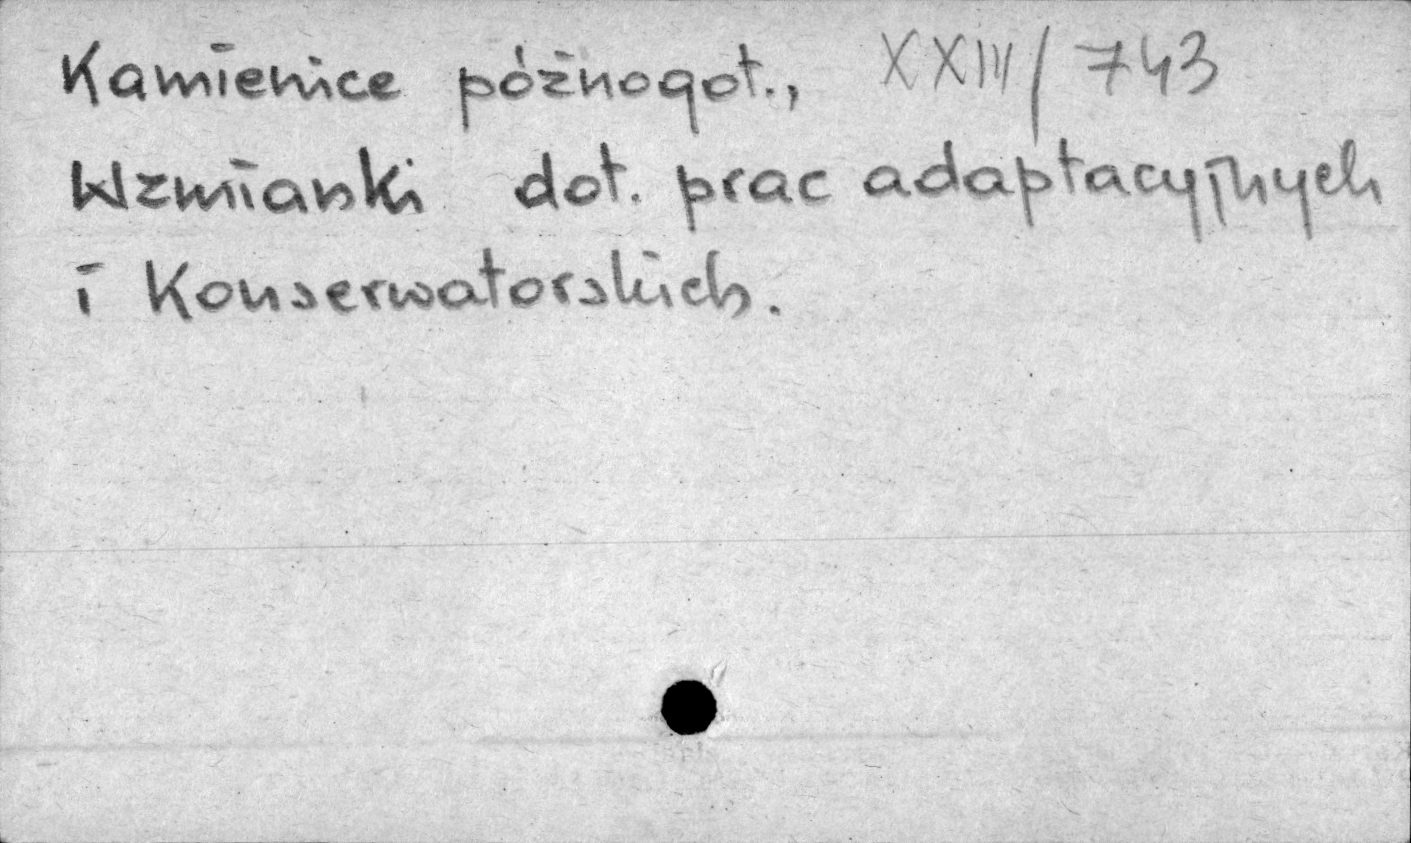 Kamienice późnogot., XXIII/743
Wzmianki dot. prac adaptacyjnych
i Konserwatorskich.